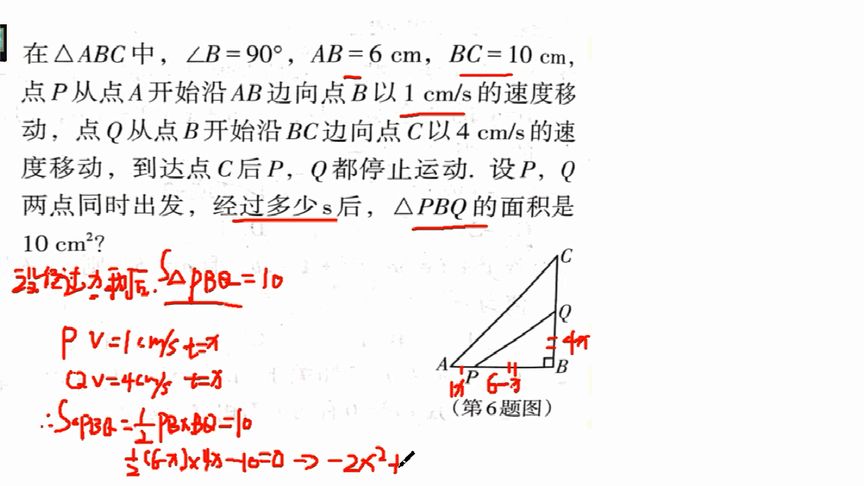 在△ABC中，∠B=90°，AB=6 cm，BC=10 cm，
点P从点A开始沿AB边向点B以1 cm/s的速度移
动，点Q从点B开始沿BC边向点C以4 cm/s的速
度移动，到达点C后P，Q都停止运动. 设P，Q
两点同时出发，经过多少s后，△PBQ的面积是
10 cm²?
设经过x秒后. S△PBQ=10
P V=1cm/s t=x
Q V=4cm/s t=x
∴S△PBQ=1/2 PB×BQ=10
1/2(6-x)×4x-10=0 → -2x²+
C
Q
=4x
A
P
B
1x
6-x
(第6题图)